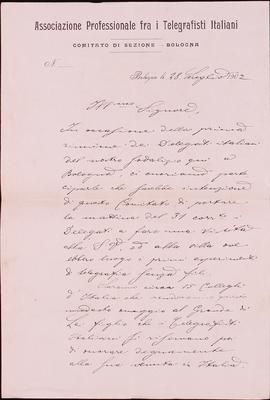 Associazione Professionale fra i Telegrafisti Italiani
COMITATO DI SEZIONE - BOLOGNA
N.
Bologna li 28 Luglio 1902
Ill.mo Signore,
In occasione della prima
riunione dei Delegati italiani
del nostro sodalizio qui a
Bologna, ci onoriamo parte
ciparle che sarebbe intenzione
di questo Comitato di portare
la mattina del 31 corr. i
Delegati a fare una visita
alla S. V. ed alla villa ove
ebbero luogo i primi esperimenti
di telegrafia senza fili.
Saranno circa 15 Colleghi
d'Italia che renderanno questo
modesto omaggio al Grande di
Lei figlio che i Telegrafisti
Italiani si riservano poi
di onorare degnamente
alla sua venuta in Italia.